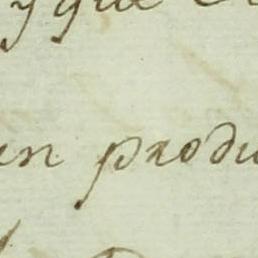 y que
en produ